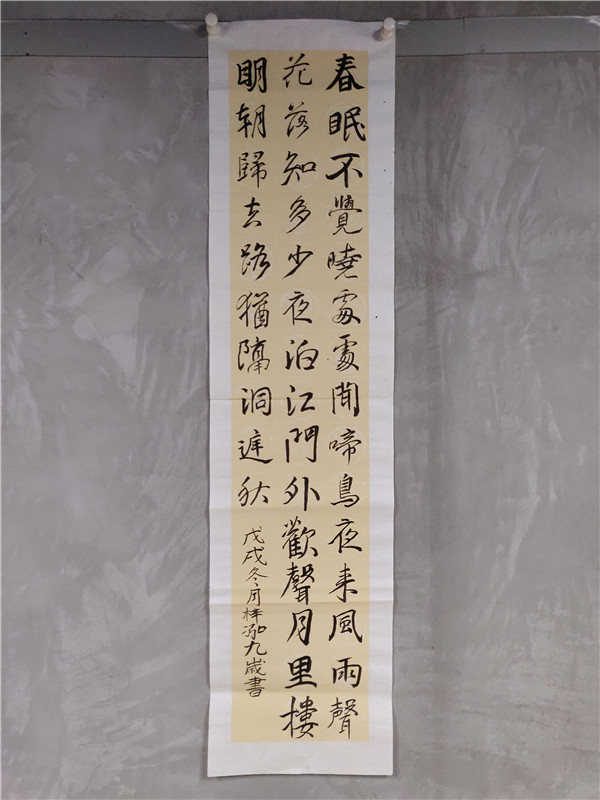 春眠不覺曉處處聞啼鳥夜来風雨聲
花落知多少夜泊江門外歡聲月里樓
明朝歸去路猶隔洞庭秋
戊戌冬月梓泓九歲書